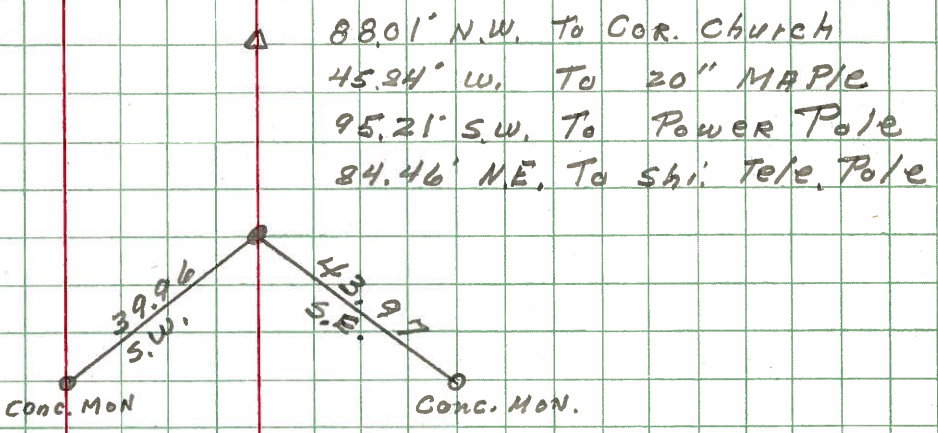 88.01' N.W. To Cor. Church
45.84' W. To 20" MAPle
95.21' S.W. To Power Pole
84.46' N.E. To shi. Tele. Pole
39.96
S.W.
43.97
S.E.
Conc. MoN
Conc. MoN.